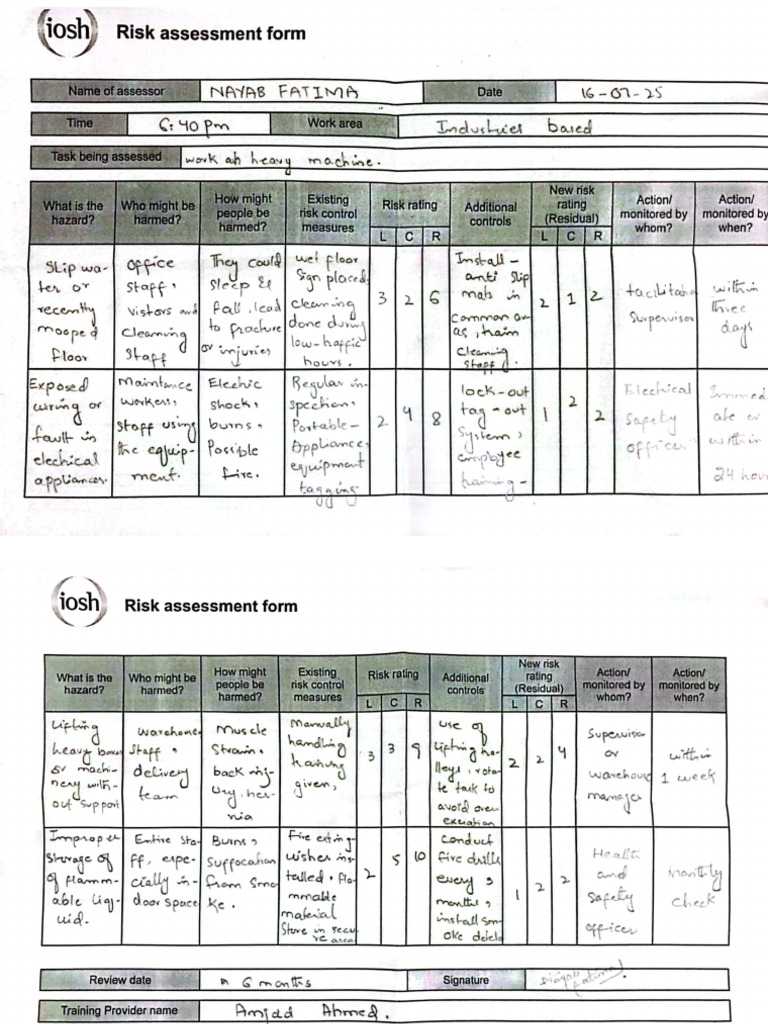 iosh
Risk assessment form
Name of assessor NAYAB FATIMA Date 16-07-25
Time 6:40 pm Work area Industries based
Task being assessed work ah heavy machine.
What is the hazard? Who might be harmed? How might people be harmed? Existing risk control measures Risk rating Additional controls New risk rating (Residual) Action/ monitored by whom? Action/ monitored by when?
L C R L C R
Slip wa-
ter or
recently
mooped
floor
office
staff,
vistors and
cleanning
staff
They could
sleep &
fall, lead
to fracture
or injuries
wet floor
sign placed
cleaning
done during
low-traffic
hours.
3 2 6
Install-
anti slip
mats in
common ar-
as, train
cleaning
staff.
2 1 2
facilitating
Supervisor
within
three
days
Exposed
wiring or
fault in
electrical
appliances.
Maintance
workers,
staff using
the equip-
ment.
Electric
shock,
burns,
Possible
fire.
Regular in-
spection,
Portable-
Appliance,
equipment
tagging
2 4 8
lock-out
tag-out
system,
employee
training-
1 2 2
Electrical
Safety
officer
Immed
ate or
within
24 hour
iosh
Risk assessment form
What is the hazard? Who might be harmed? How might people be harmed? Existing risk control measures Risk rating Additional controls New risk rating (Residual) Action/ monitored by whom? Action/ monitored by when?
L C R L C R
Lifting
heavy boxes
or machi-
nery with-
out support
Warehouse
staff,
delivery
team
Muscle
Strain,
back inj-
ury, her-
nia
Manually
handling
training
given,
3 3 9
use of
lifting tro-
lleys, rota-
te task to
avoid over
exeration
2 2 4
Supervisor
or
warehouse
manager
within
1 week
Improper
Storage of
of flamm-
able liq-
uid.
Entire sta-
ff, espe-
cially in-
door space
Burns,
suffocation
from smo-
ke.
Fire exting-
wishers ins-
talled, fla-
mmable
material
Store in secu-
re area
2 5 10
conduct
fire drills
every 3
months,
install sm-
oke detele
1 2 2
Health
and
safety
officer
Monthly
check
Review date 6 months Signature Nayab Fatima
Training Provider name Amjad Ahmed.